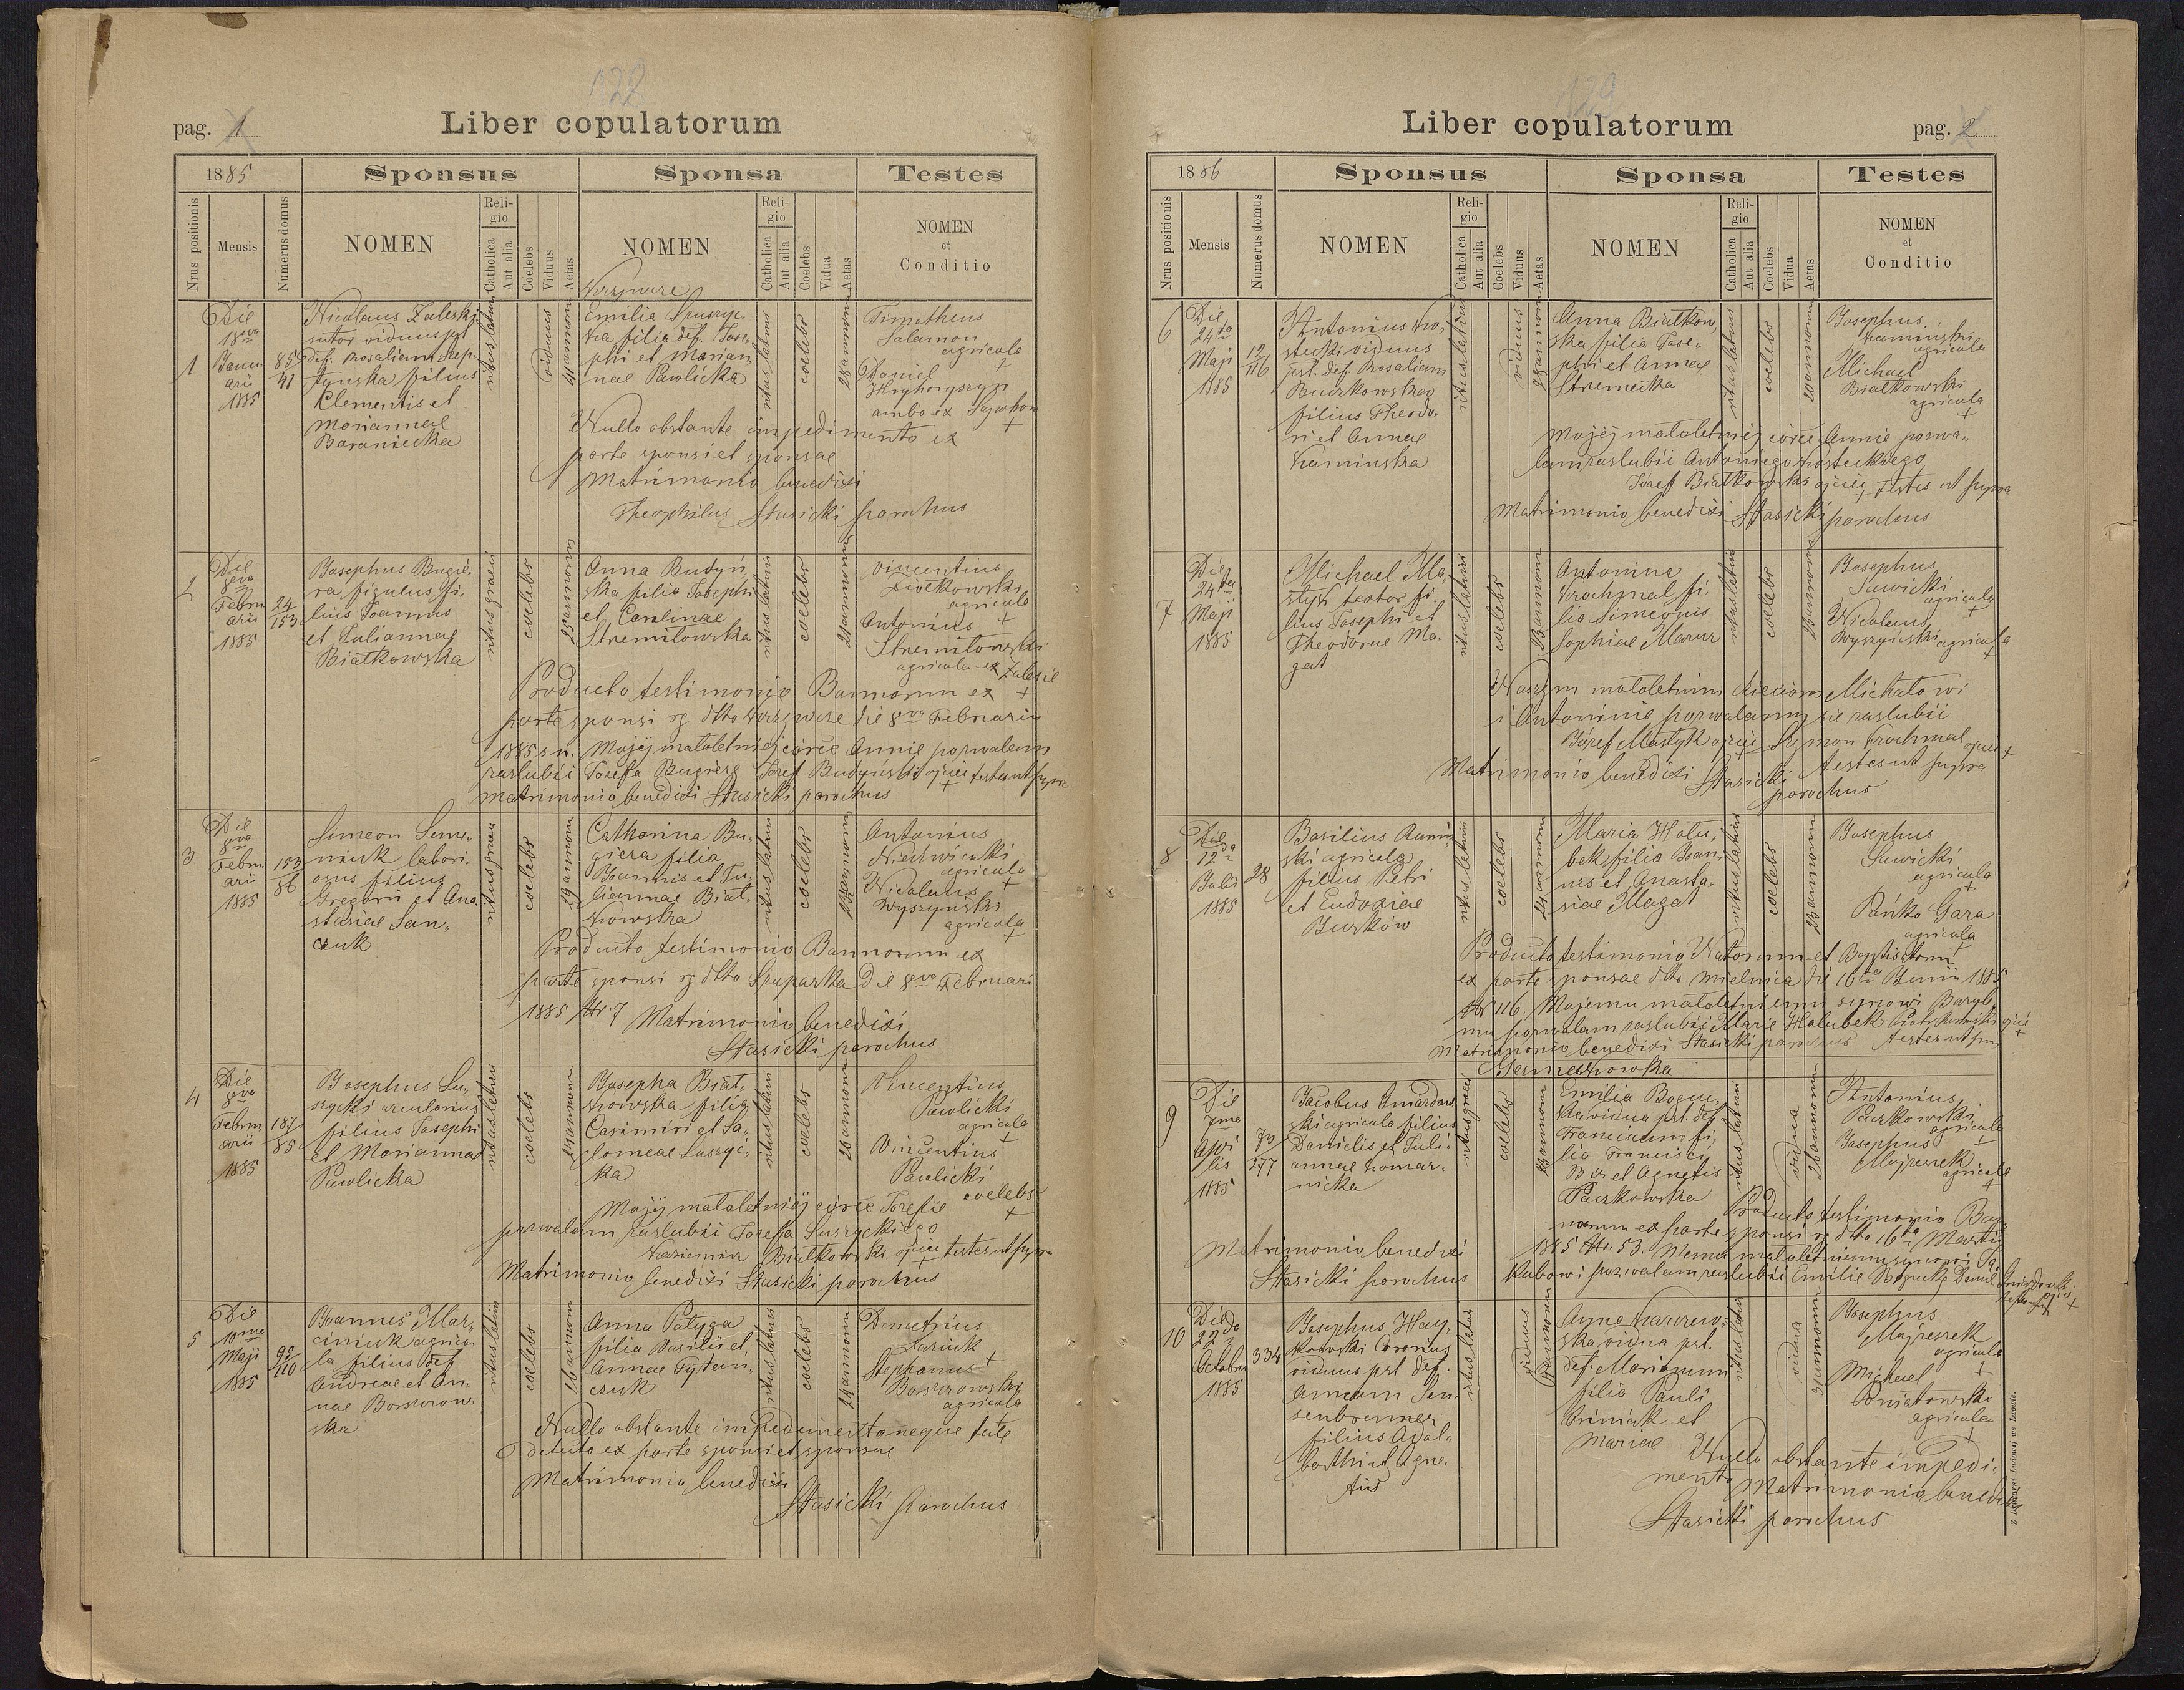 128
pag. 1
Liber copulatorum
1885
Sponsus
Sponsa
Testes
Nrus positionis
Mensis
Numerus domus
NOMEN
Religio
Catholica
Aut alia
Coelebs
Viduus
Aetas
NOMEN
Religio
Catholica
Aut alia
Coelebs
Vidua
Aetas
NOMEN
et
Conditio
1
Die
18va
Janu
arii
1885
85
41
Nicolaus Zaleski
sutor viduus pst
def. Rosaliam Szep
tynska filius
Clementis et
Mariannae
Baraniecka
ritus latini
viduus
41 annorum
Emilia
ska filia def. Jose
phi et Marian
nae Pawlicka
ritus latini
coelebs
28 annorum
Timotheus
Salamon
agricola
Daniel
Hryhoryszyn
ambo ex
+
Nullo obstante impedimento ex
parte sponsi et sponsae
Matrimonio benedixi
Theophilus Stasicki parochus
2
Die
8va
Febru
arii
1885
24
153
Josephus Bugie
ra figulus fi
lius Joannis
et Julianney
Białkowska
ritus graeci
coelebs
25 annorum
Anna Budyń
ska filia Josephi
et Carolinae
Stremilowska
ritus latini
coelebs
21 annorum
Vincentius
agricola
+
Antonius
Stremilowski
agricola ex Zalesie
+
Producto testimonio Bannorum ex
parte sponsi rg dtto die 8va Februarii
1885 s n. Mojéj małoletniéj córce Annie pozwalam
zaslubić Józefa Bugierę Józef Budyński ojciec testes ut supra
matrimonio benedixi Stasicki parochus
3
Die
8va
Febru
arii
1885
153
86
Simeon Seme
niuk labori
osus filius
Gregorii et Ana
stasiae San
czuk
ritus graeci
coelebs
29 annorum
Catharina Bu
giera filia
Joannis et Ju
liannae Biał
kowska
ritus latini
coelebs
23 annorum
Antonius
agricola
+
Nicolaus
Wyszyński
agricola
+
Producto testimonio Bannorum ex
parte sponsi rg dtto Skuparka Die 8va Februari
1885 Nr 7 Matrimonio benedixi
Stasicki parochus
4
Die
8va
Febru
arii
1885
187
85
Josephus Su
szycki arcularius
filius Josephi
et Marianna
Pawlicka
ritus latini
coelebs
24 annorum
Josepha Biał
kowska filia
Casimiri et Sa
lomeae Suszyc
ka
ritus latini
coelebs
21 annorum
Vincentius
Pawlicki
agricola
+
Vincentius
Pawlicki
coelebs
+
Mojéj małoletniéj córce Józefie
pozwalam zaslubić Józefa Suszyckiego
Kazimierz Białkowski ojciec testes ut supra
Matrimonio benedixi Stasicki parochus
5
Die
10ma
Maji
1885
95
110
Joannes Mar
ciniuk agrico
la filius def
Andreae et An
nae Borszczow
ska
ritus latini
coelebs
26 annorum
Anna Patyga
filia Basilii et
Annae Tytian
czuk
ritus latini
coelebs
24 annorum
Demetrius
Lasiuk
+
Stephanus
Borszczowski
agricola
Nullo obstante impedimento neque tale
detecto ex parte sponsi et sponsae
Matrimonio benedixi
Stasicki parochus
129
Liber copulatorum
pag. 2
1886
Sponsus
Sponsa
Testes
Nrus positionis
Mensis
Numerus domus
NOMEN
Religio
Catholica
Aut alia
Coelebs
Viduus
Aetas
NOMEN
Religio
Catholica
Aut alia
Coelebs
Vidua
Aetas
NOMEN
et
Conditio
6
Die
24ta
Maji
1885
12
116
Antonius Ko
stecki viduus
pst. def. Rosaliam
Buczkowska
filius Theodo
ri et Annae
Kaminska
ritus latini
viduus
28 annorum
Anna Białkow
ska filia Jose
phi et Annae
Stremecka
ritus latini
coelebs
20 annorum
Josephus
Kaminski
agricola
Michael
Białkowski
agricola
+
Mojéj małoletniéj córce Annie pozwa
lam zaslubić Antoniego Kosteckiego
Józef Białkowski ojciec testes ut supra
Matrimonio benedixi Stasicki parochus
7
Die
24ta
Maji
1885
Michael Ma
styk textor fi
lius Josephi et
Theodorae Ma
gat
ritus latini
coelebs
23 annorum
Antonina
Krochmal fi
lia Simeonis
Sophiae Mazur
ritus latini
coelebs
Josephus
Sawicki
agricola
+
Nicolaus
Wyszyński agricola
+
Naszym małoletnim dzieciom Michałowi
i Antoninie pozwalamy się zaslubić
Józef Mastyk ojciec Szymon Krochmal ojciec +
testes ut supra
Matrimonio benedixi Stasicki
parochus
8
Die
12a
Julii
1885
28
Basilius
ski agricola
filius Petri
et Eudoxiae
Jurków
ritus latini
coelebs
24 annorum
Maria Hołu
bek filia Joan
nis et Anasta
siae Magat
ritus latini
coelebs
23 annorum
Josephus
Sawicki
agricola
+
Pańko Gara
agricola
+
Producto testimonio Natorum et Baptisatorum
ex parte sponsae dtto Mielnica die 16ta Junii 1885
Nr 116. Mojemu małoletniemu synowi Bazyle
mu pozwalam zaslubić Marie Hołubek Piotr ojciec
+
Matrimonio benedixi Stasicki parochus testes ut supra
9
Die
7ma
Apri
lis
1885
73
277
Jacobus Gwiazdow
ski agricola filius
Danielis et Juli
annae Komar
nicka
ritus graeci
coelebs
23 annorum
Emilia Bogu
cka vidua pst. def
Franciscum fi
lia Francisci
Bas et Agnetis
Paczkowska
ritus latini
vidua
Antonius
Paczkowski
agricola
+
Josephus
Majeszek
agricola
+
Producto testimonio Ban
norum ex parte sponsi rg dtto 16ta Martii
1885 Nr. 53. Memu małoletniemu synowi Ja
kubowi pozwalam zaslubić Emilie Bogucką Daniel
Matrimonio benedixi
Stasicki parochus
10
Die
22da
Octobris
1885
334
Josephus Hay
kowski
viduus pst def.
Annam Sen
senbrenner
filius Adal
berthi et Agne
tis
ritus latini
viduus
Anna
ska vidua pst.
def. Marianum
filia Pauli
et
Mariae
ritus latini
vidua
31 annorum
Josephus
Majeszek
agricola
+
Michael
Poniatowski
agricola
+
Nullo obstante impedi
mento Matrimonio benedixi
Stasicki parochus
Z Drukarni Ludowej we Lwowie.